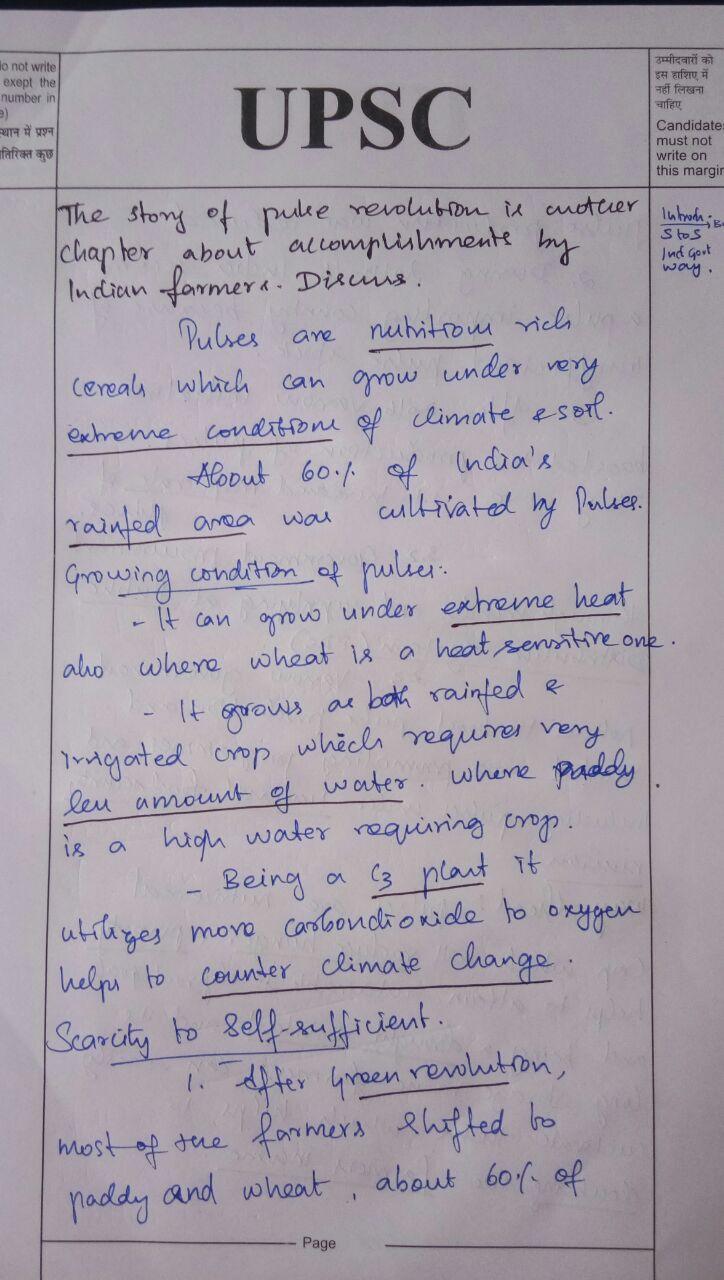 do not write
exept the
number in
e)
स्थान में प्रश्न
तिरिक्त कुछ
UPSC
उम्मीदवारों को
इस हाशिए में
नहीं लिखना
चाहिए
Candidate
must not
write on
this margin
Introdn.
S to S
Ind Govt
way.
The story of pulse revolution is another
chapter about accomplishments by
Indian farmers. Discuss.
Pulses are nutrition rich
cereals which can grow under very
extreme conditions of climate & soil.
About 60% of India's
rainfed area was cultivated by Pulses.
Growing condition of pulses:
- It can grow under extreme heat
also where wheat is a heat sensitive one.
- It grows as both rainfed &
irrigated crop which requires very
less amount of water. where paddy
is a high water requiring crop.
- Being a C3 plant it
utilizes more carbondioxide to oxygen
helps to counter climate change.
Scarcity to Self-sufficient.
1. After Green revolution,
most of the farmers shifted to
paddy and wheat, about 60% of
Page